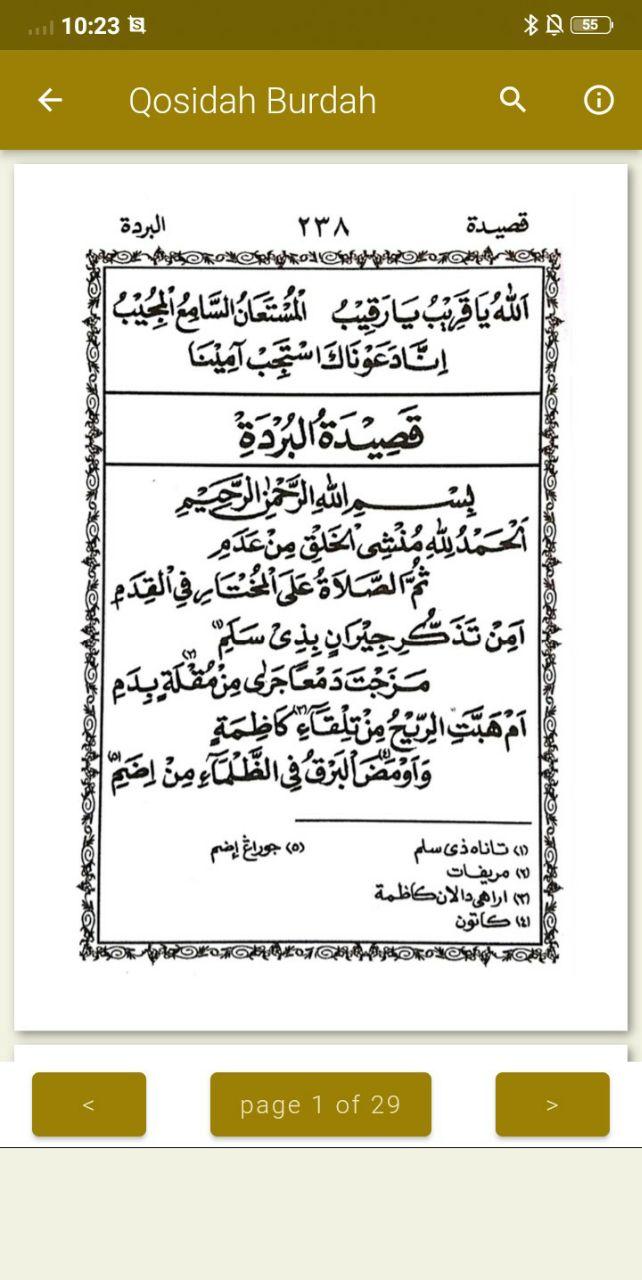 10:23
55
Qosidah Burdah
قصيدة ٢٣٨ البردة
اَللهُ يَا قَرِيْبُ يَا رَقِيْبُ اَلْمُسْتَعَانُ السَّامِعُ الْمُجِيْبُ
اِنَّا دَعَوْنَاكَ اسْتَجِبْ آمِيْنَا
قَصِيْدَةُ الْبُرْدَةِ
بِسْـــمِ اللهِ الرَّحْمٰنِ الرَّحِيْــمِ
اَلْحَمْدُ لِلّٰهِ مُنْشِى الْخَلْقِ مِنْ عَدَمِ
ثُمَّ الصَّلَاةُ عَلَى الْمُخْتَارِ فِى الْقِدَمِ
اَمِنْ تَذَكُّرِ جِيْرَانٍ بِذِىْ سَلَمِ (١)
مَزَجْتَ دَمْعًا جَرٰى مِنْ مُقْلَةٍ (٢) بِدَمِ
اَمْ هَبَّتِ الرِّيْحُ مِنْ تِلْقَاۤءِ (٣) كَاظِمَةٍ
وَاَوْمَضَ (٤) الْبَرْقُ فِى الظَّلْمَاۤءِ مِنْ اِضَمِ (٥)
(١) تاناه ذى سلم (٥) جوراڠ إضم
(٢) مريفات
(٣) اراهى دالان كاظمة
(٤) كاتون
< page 1 of 29 >